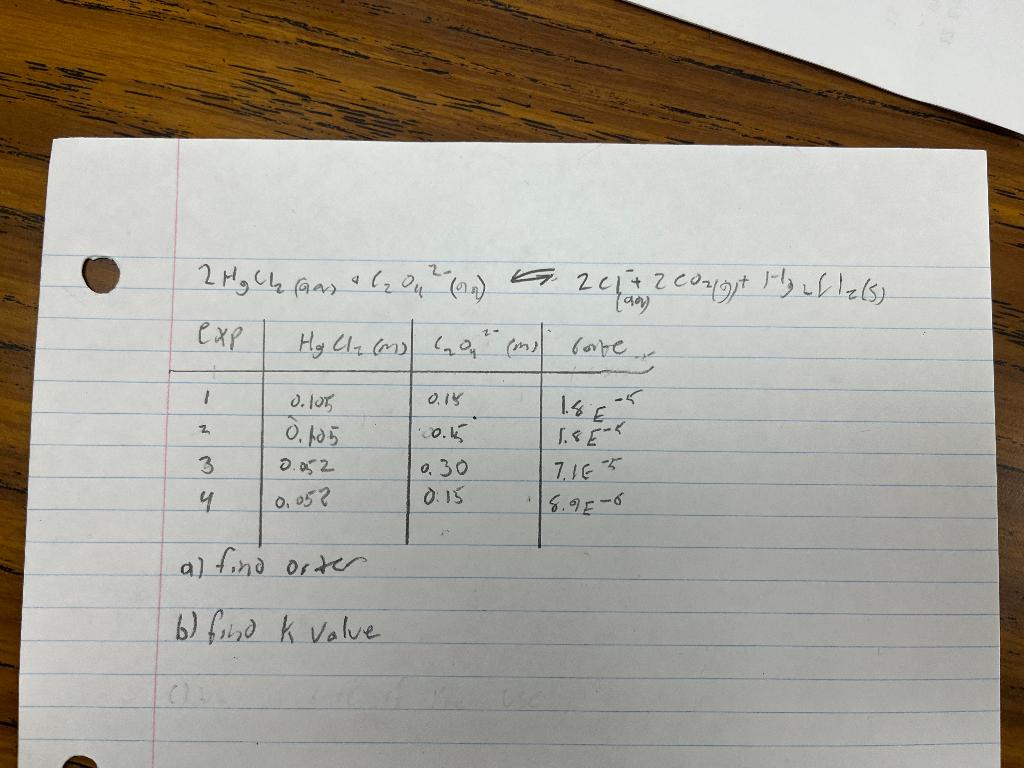 2HgCl₂(aq) + C₂O₄²⁻(aq) ⇌ 2Cl⁻(aq) + 2CO₂(g) + Hg₂Cl₂(s)
exp HgCl₂(m) C₂O₄²⁻(m)
1 0.105 0.15 1.8E⁻⁵
2 0.105 0.15 1.8E⁻⁵
3 0.052 0.30 7.1E⁻⁵
4 0.052 0.15 8.9E⁻⁶
a) find order
b) find k value